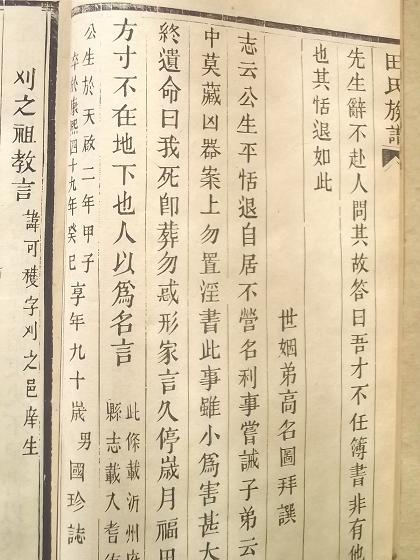 田氏族譜
先生辭不赴人問其故答曰吾才不任簿書非有他
也其恬退如此
世姻弟高名圖拜譔
志云公生平恬退自居不營名利事嘗誡子弟云
中莫藏凶器案上勿置淫書此事雖小為害甚大
終遺命曰我死卽葬勿惑形家言久停歲月福田
方寸不在地下也人以為名言
此條載沂州府
縣志載入耆
公生於天啟二年甲子
卒於康熙四十九年癸巳享年九十歲男國珍誌
刈之祖教言
諱可穫字刈之邑庠生